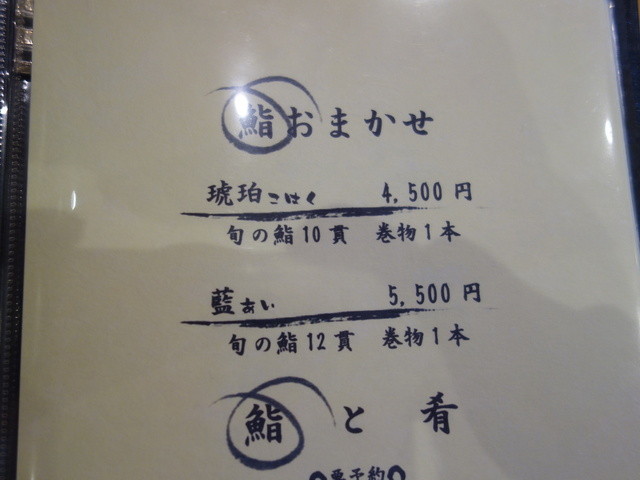 鮨おまかせ
琥珀こはく 4,500円
旬の鮨10貫 巻物1本
藍あい 5,500円
旬の鮨12貫 巻物1本
鮨と肴
要予約